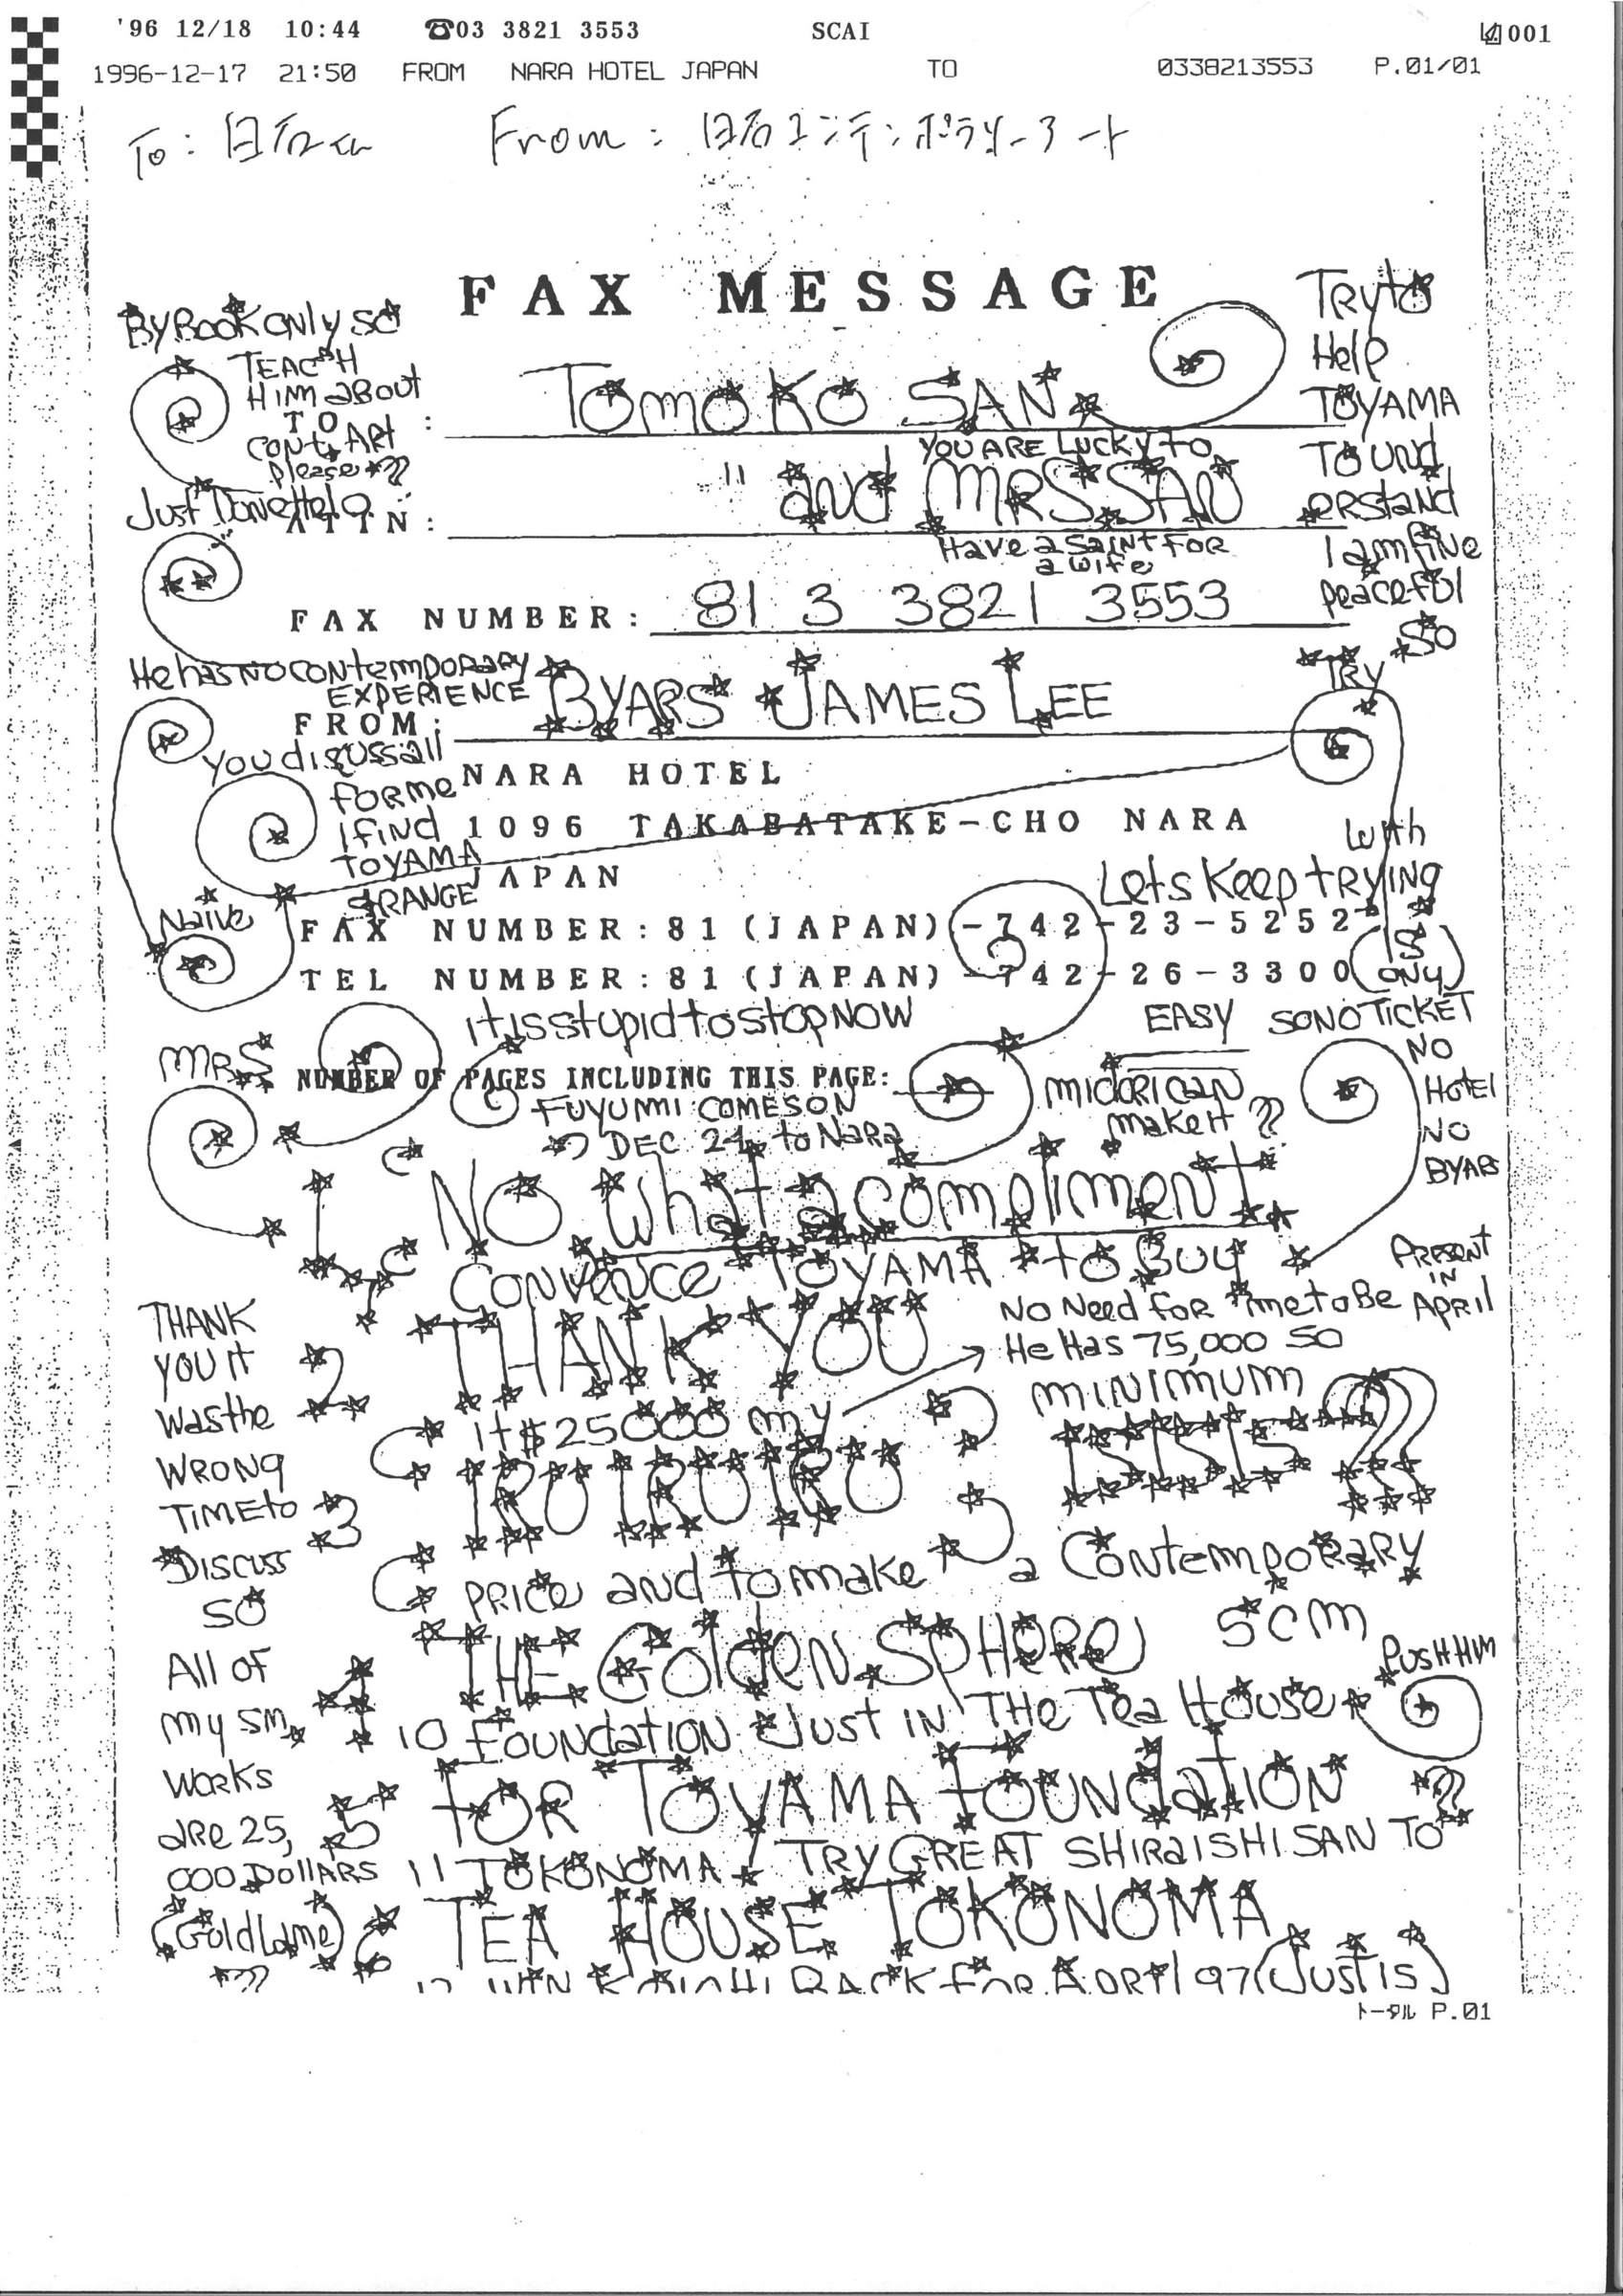 '96 12/18 10:44 ☎03 3821 3553 SCAI 001
1996-12-17 21:50 FROM NARA HOTEL JAPAN TO 0338213553 P.01/01
To: From: コンテンポラリーアート
FAX MESSAGE
By Book only so
TEACH
Him about
CONt. ART
please
Just Done Helo
TO: TOMOKO SAN
YOU ARE Lucky to
ATTN: " and MRS SAN
Have a saint for
a wife
TRy to
Help
TOYAMA
TO UND
ERStand
I am fine
peaceful
So
TRY
FAX NUMBER: 81 3 3821 3553
He has NO contemporary
EXPERIENCE
FROM: BYARS JAMES LEE
you discuss all
for me
I find
TOYAMA
strange
Naive
NARA HOTEL
1096 TAKABATAKE-CHO NARA
JAPAN
with
Lets Keep trying
FAX NUMBER:81(JAPAN)-742-23-5252
TEL NUMBER:81(JAPAN)-742-26-3300
(IS
ONLY)
it is stupid to stop NOW
EASY SO NO TICKET
NO
Hotel
NO
BYARS
MRS
NUMBER OF PAGES INCLUDING THIS PAGE:
MIDORI CAN
make it
FUYUMI COME SOON
DEC 24 to NARA
1 NO What a compliment
Convence TOYAMA to Buy
PRESENT
IN
APRIL
NO Need for me to Be
He Has 75,000 SO
THANK
YOU it
was the
WRONG
TIME to
Discuss
SO
All of
my sm.
works
are 25,
000 Dollars
(Gold Lame)
2 THANK YOU
it $25000 my
MINIMUM
3 IRO IRO IRO IS IS IS
price and to make a Contemporary
4 THE Golden SPHERE 5 CM
PUSH HIM
10 Foundation Just IN THE Tea House
5 FOR TOYAMA FOUNdation
11 TOKONOMA TRY GREAT SHIRAISHI SAN TO
6 TEA HOUSE TOKONOMA
BACK for APRIL 97 (JUST IS)
トータル P.01